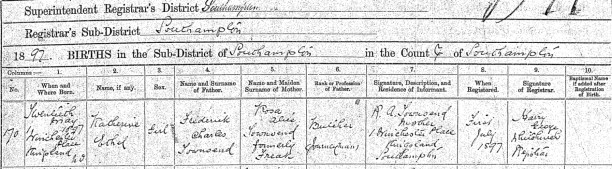 Superintendent Registrar's District Southampton
Registrar's Sub-District Southampton
1897. BIRTHS in the Sub-District of Southampton in the County of Southampton
Columns:— 1. 2. 3. 4. 5. 6. 7. 8. 9. 10.
No. When and Where Born. Name, if any. Sex. Name and Surname of Father. Name and Maiden Surname of Mother. Rank or Profession of Father. Signature, Description, and Residence of Informant. When Registered. Signature of Registrar. Baptismal Name if added after Registration of Birth.
170 Twentieth May 1897 Winchester Place Kingsland Katherine Ethel Girl Frederick Charles Townsend Rosa Alice Townsend formerly Freak Butcher (Journeyman) R. A. Townsend Mother 1 Winchester Place Kingsland Southampton First July 1897 Harry Registrar